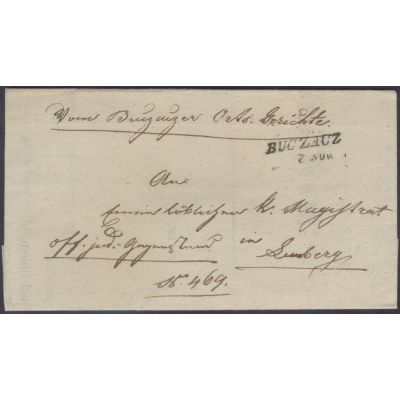 Vom Buczaczer Orts-Gerichte
BUCZACZ
7 NOV
An
Einen löblichen k. Magistrat
in
off. jud. Gegenstand
Lemberg
N. 469.